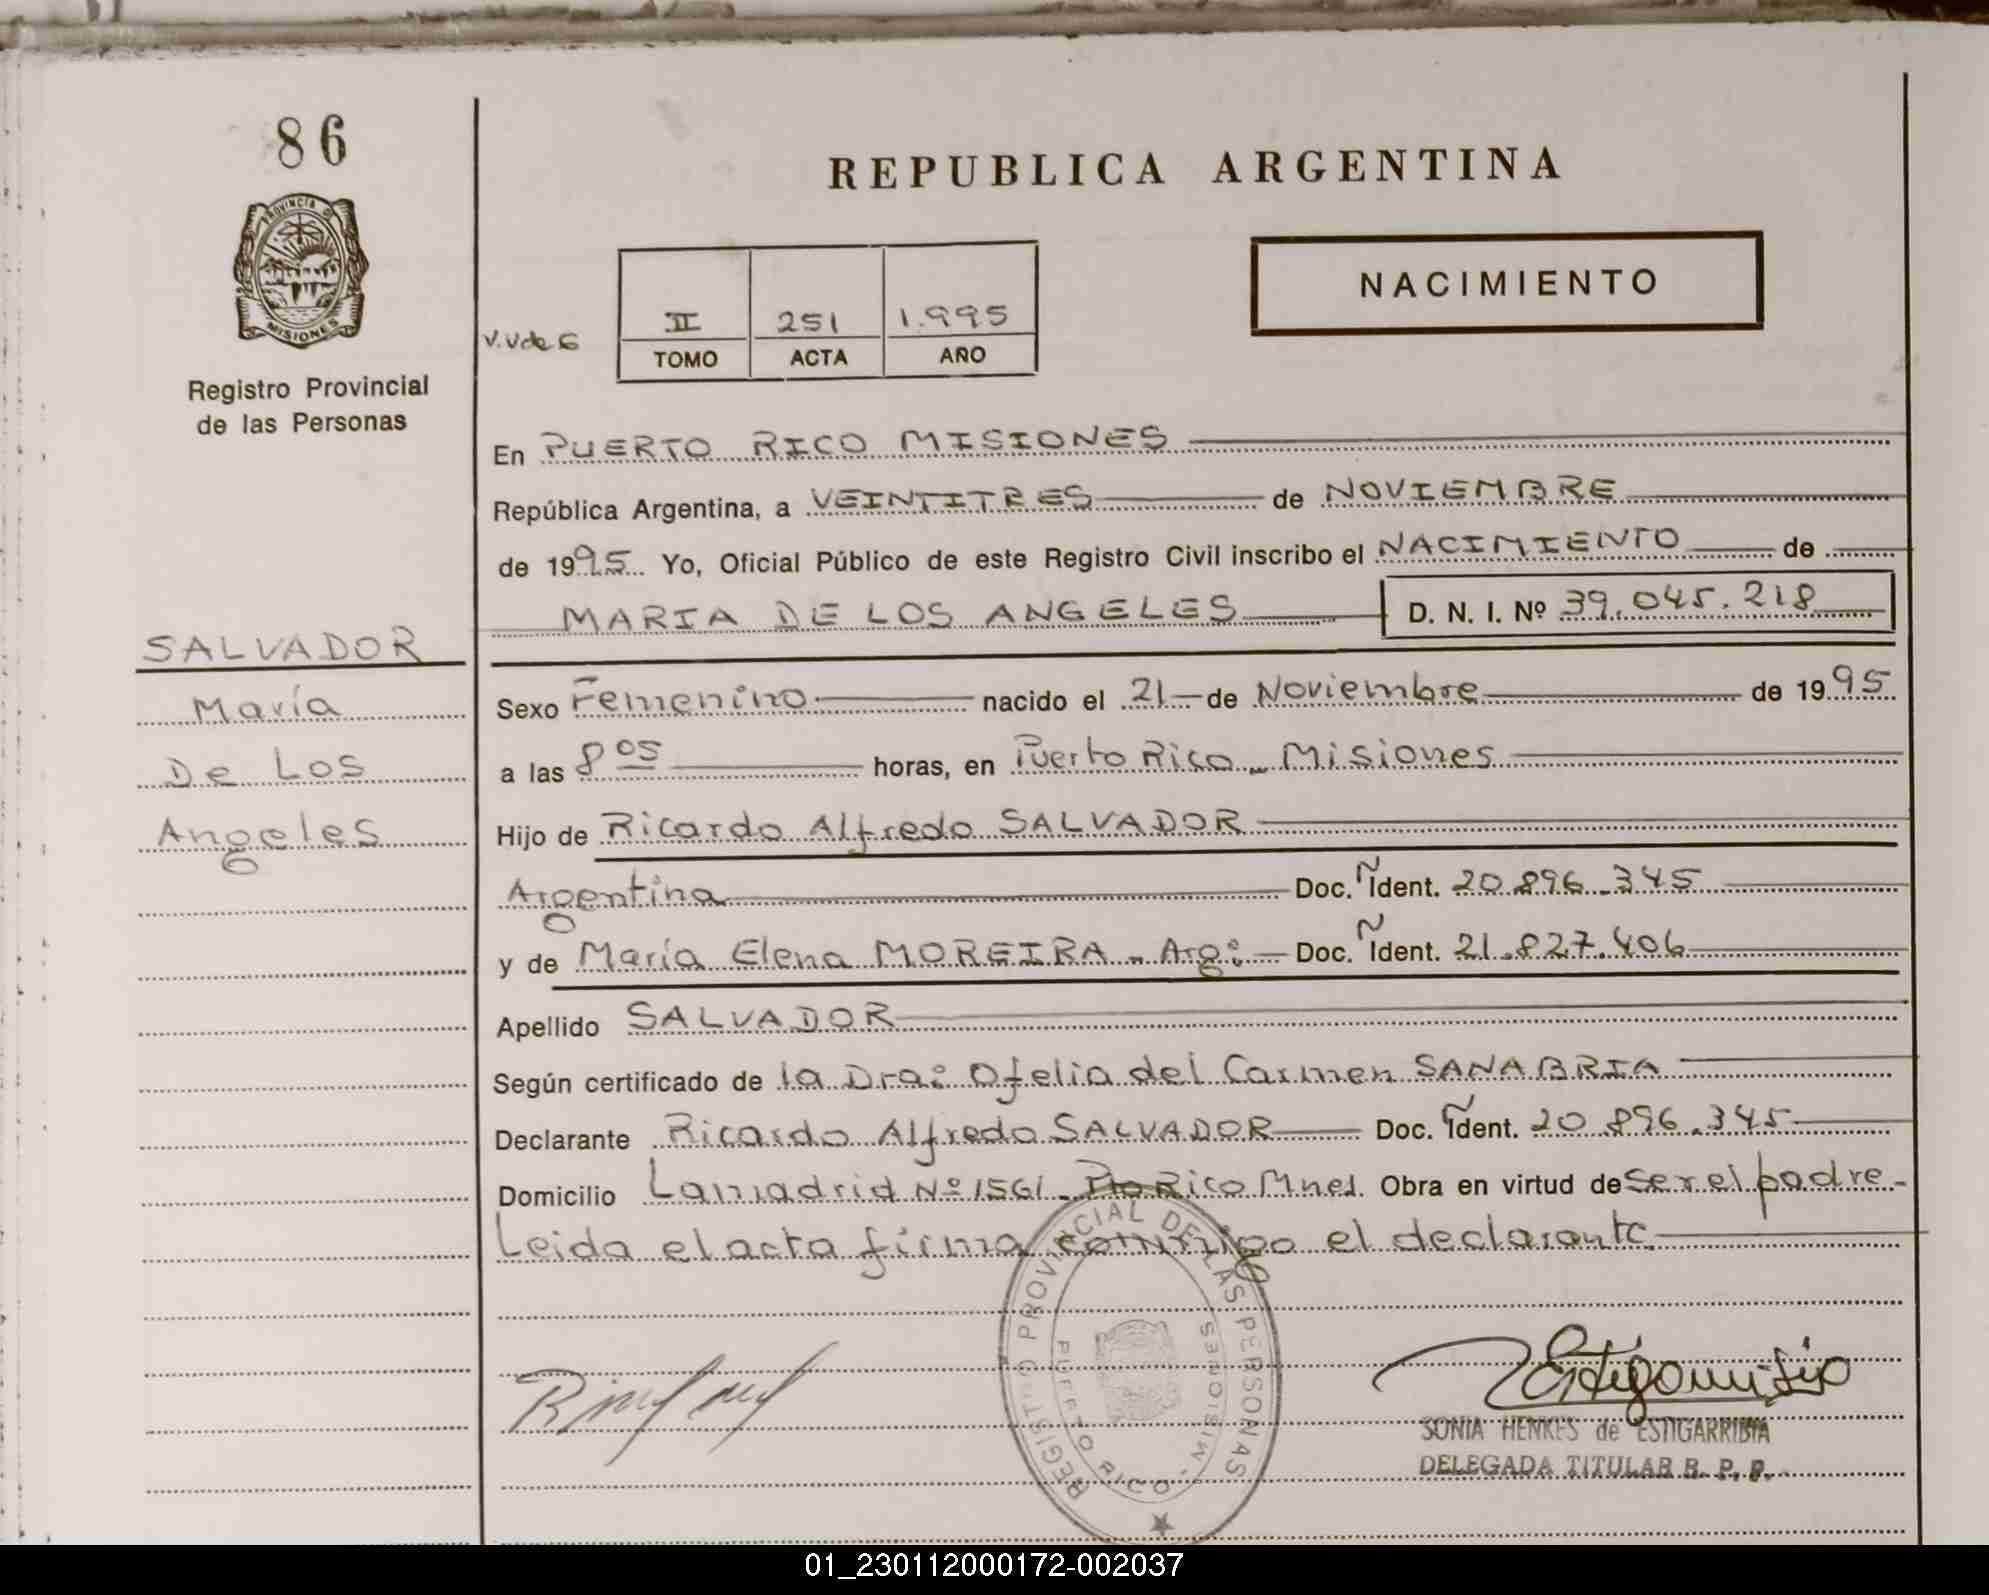 86
PROVINCIA DE
MISIONES
Registro Provincial
de las Personas
SALVADOR
María
De Los
Angeles
REPUBLICA ARGENTINA
NACIMIENTO
II 251 1.995
TOMO ACTA AÑO
En PUERTO RICO MISIONES
República Argentina, a VEINTITRES de NOVIEMBRE
de 1995 Yo, Oficial Público de este Registro Civil inscribo el NACIMIENTO de
MARIA DE LOS ANGELES D. N. I. Nº 39.045.218
Sexo Femenino nacido el 21 de Noviembre de 1995
a las 8 05 horas, en Puerto Rico - Misiones
Hijo de Ricardo Alfredo SALVADOR
Argentina Doc. Ident. 20.896.345
y de María Elena MOREIRA - Arg: Doc. Ident. 21.827.406
Apellido SALVADOR
Según certificado de la Dra: Ofelia del Carmen SANABRIA
Declarante Ricardo Alfredo SALVADOR Doc. Ident. 20.896.345
Domicilio Lamadrid Nº 1561 - Pto Rico Mnes. Obra en virtud de ser el padre -
Leida el acta firma conmigo el declarante.
REGISTRO PROVINCIAL DE LAS PERSONAS
PUERTO RICO - MISIONES
SONIA HENKES de ESTIGARRIBIA
DELEGADA TITULAR R. P. P.
01_230112000172-002037